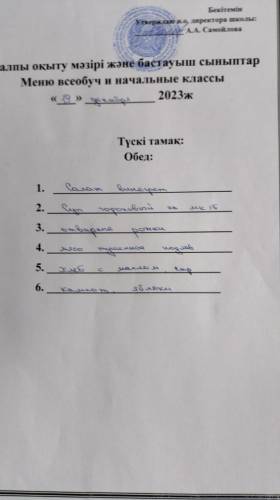 Бекітемін
Утверждаю и.о. директора школы:
А.А. Самойлова
алпы оқыту мәзірі және бастауыш сыныптар
Меню всеобуч и начальные классы
« 19 » декабря 2023ж
Түскі тамақ:
Обед:
1. Салат винегрет
2. Суп гороховый на мк/б
3. отварные рожки
4. мясо тушеное подлив
5. хлеб с маслом сыр
6. компот, яблоки